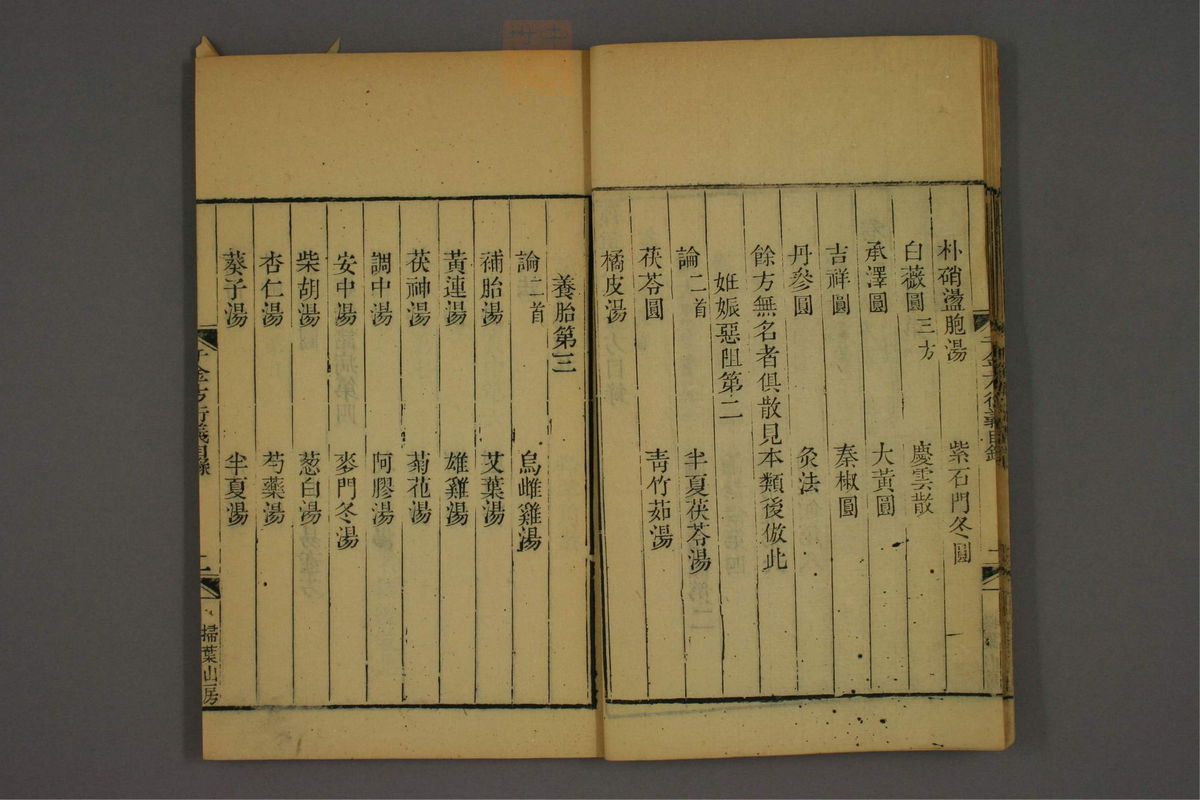 朴硝盪胞湯　紫石門冬圓
白薇圓三方　慶雲散
承澤圓　大黃圓
吉祥圓　秦椒圓
丹參圓　灸法
餘方無名者俱散見本類後倣此
姙娠惡阻第二
論二首　半夏茯苓湯
茯苓圓　青竹茹湯
橘皮湯
養胎第三
論二首　烏雌雞湯
補胎湯　艾葉湯
黃連湯　雄雞湯
茯神湯　菊花湯
調中湯　阿膠湯
安中湯　麥門冬湯
柴胡湯　葱白湯
杏仁湯　芍藥湯
葵子湯　半夏湯
千金方衍義目錄　二　掃葉山房